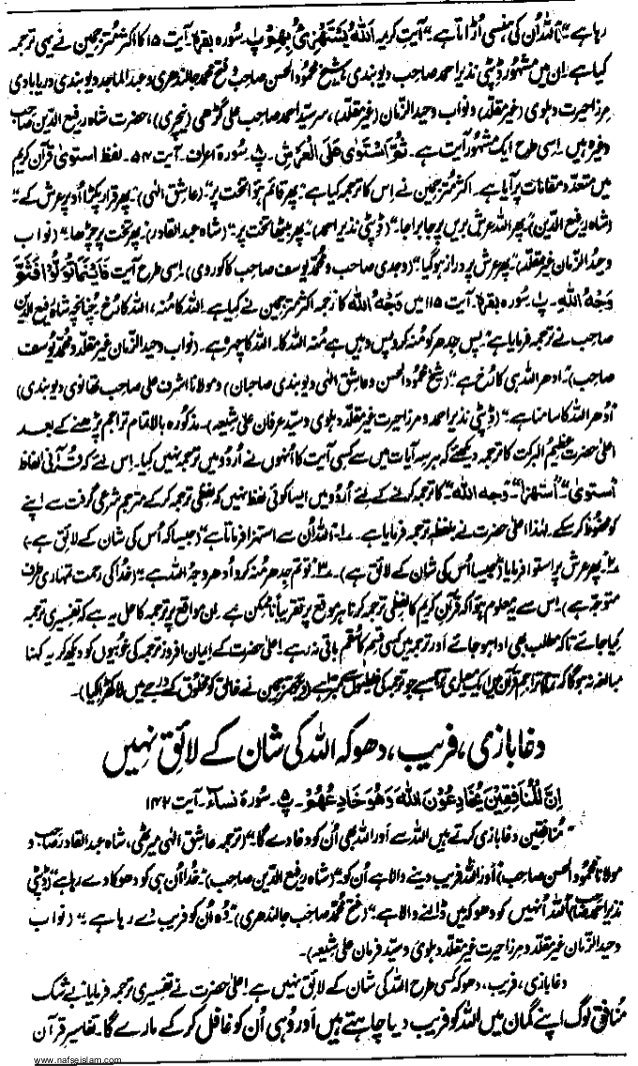 رہا ہے"۔ "اللہ اُن کی ہنسی اُڑاتا ہے"۔ آیت کریمہ اَللّٰہُ یَسْتَھْزِئُ بِھِمْ۔ پ سورہ بقرہ آیت ۱۵ کا اکثر مترجمین نے یہی ترجمہ
کیا ہے۔ اِن میں مشہور ڈپٹی نذیر احمد صاحب دیوبندی، شیخ محمود الحسن صاحب، فتح محمد جالندھری و عبدالماجد دیوبندی دریابادی
مرزا حیرت دہلوی (غیر مقلد) و نواب وحید الزمان (غیر مقلد)، سر سید احمد صاحب علی گڑھی (نیچری)، حضرت شاہ رفیع الدین صاحب
وغیرہ ہیں۔ اِسی طرح ایک مشہور آیت ہے۔ ثُمَّ اسْتَوٰی عَلَی الْعَرْشِ۔ پ سورۃ اعراف۔ آیت ۵۴۔ لفظ استویٰ قرآن کریم
میں متعدد مقامات پر آیا ہے۔ اکثر مترجمین نے اِس کا ترجمہ کیا ہے "پھر قائم ہوا تخت پر" (عاشق الٰہی)۔ "پھر قرار پکڑا اُوپر عرش کے"۔
(شاہ رفیع الدین)۔ "پھر اللہ عرش بریں پر جا براجا"۔ (ڈپٹی نذیر احمد)۔ "پھر بیٹھا تخت پر"۔ (شاہ عبدالقادر) "پھر تخت پر چڑھا"۔ (نواب
وحید الزمان غیر مقلد)۔ "پھر عرش پر دراز ہوگیا"۔ (وجدی صاحب و محمد یوسف صاحب کاکوروی)۔ اِسی طرح آیت فَاَیْنَمَا تُوَلُّوْا فَثَمَّ
وَجْهُ اللّٰهِ۔ پ سورہ بقرہ آیت ۱۱۵ میں وَجْهُ اللّٰه کا ترجمہ اکثر مترجمین نے کیا ہے۔ اللہ کا مُنہ، اللہ کا رُخ چنانچہ شاہ رفیع الدین
صاحب نے ترجمہ فرمایا ہے "پس جدھر کو مُنہ کرو پس وہیں ہے مُنہ اللہ کا۔ اللہ کا چہرہ ہے۔ (نواب وحید الزمان غیر مقلد و محمد یوسف
صاحب)۔ "ادھر اللہ ہی کا رُخ ہے"۔ (شیخ محمود الحسن و عاشق الٰہی دیوبندی صاحبان) و مولانا اشرف علی صاحب تھانوی دیوبندی)
"اُدھر اللہ کا سامنا ہے"۔ (ڈپٹی نذیر احمد و مرزا حیرت غیر مقلد دہلوی و سید عرفان علی شیعہ)۔ مذکورہ بالا تمام تراجم پڑھنے کے بعد
اعلیٰ حضرت عظیم البرکت کا ترجمہ دیکھئے کہ ہر سہ آیات میں سے کسی آیت کا اُنہوں نے اُردو میں ترجمہ نہیں کیا۔ اِس لئے کہ قرآنی الفاظ
"استویٰ"۔ "اِستہزأ"۔ "وجہ اللہ"۔ کا ترجمہ کرنے کے لئے اُردو میں ایسا کوئی لفظ نہیں کہ لفظی ترجمہ کر کے مترجم شرعی گرفت سے اپنے
کو محفوظ کر سکے۔ لہٰذا اعلیٰ حضرت نے بلفظہٖ ترجمہ فرمایا ہے۔ ۱۔ "اللہ اُن سے استہزا فرماتا ہے" (جیسا کہ اُس کی شان کے لائق ہے۔)
۲۔ "پھر عرش پر استوا فرمایا" (جیسا اُس کی شان کے لائق ہے)۔ ۳۔ "تو تم جدھر منہ کرو اُدھر وجہُ اللہ ہے"۔ (خدا کی رحمت تمہاری طرف
متوجہ ہے)۔ اِس سے یہ معلوم ہوا کہ قرآن کریم کا لفظی ترجمہ کرنا ہر موقع پر تقریباً ناممکن ہے۔ اِن مواقع پر ترجمہ کا حل یہ ہے کہ تفسیری ترجمہ
کیا جائے تاکہ مطلب بھی ادا ہو جائے اور ترجمہ میں کسی قسم کا سُقم باقی نہ رہے۔ اعلیٰ حضرت کے ایمان افروز ترجمہ کی خوبیوں کو دیکھ کر یہ کہنا
مبالغہ نہ ہوگا کہ تمام تراجمِ قرآن میں ایک معیاری ترجمہ ہے جو ترجمہ کی غلطیوں سے مبرا ہے (دیگر مترجمین نے خالق کو مخلوق کے درجے میں لا کھڑا کیا)۔
دغابازی، فریب، دھوکہ اللہ کی شان کے لائق نہیں
اِنَّ الْمُنَافِقِیْنَ یُخَادِعُوْنَ اللّٰهَ وَھُوَ خَادِعُھُمْ۔ پ۵۔ سورۃ نساء۔ آیت ۱۴۲
"منافقین دغابازی کرتے ہیں اللہ سے اور اللہ بھی اُن کو دغا دے گا"۔ (ترجمہ عاشق الٰہی میرٹھی، شاہ عبدالقادر صاحب و
مولانا محمود الحسن صاحب)۔ "اور اللہ فریب دینے والا ہے اُن کو"۔ (شاہ رفیع الدین صاحب)۔ "خدا اُن ہی کو دھوکا دے رہا ہے"۔ (ڈپٹی
نذیر احمد صاحب)۔ "اللہ اُنہیں کو دھوکہ میں ڈالنے والا ہے"۔ (فتح محمد صاحب جالندھری)۔ "وہ اُن کو فریب دے رہا ہے"۔ (نواب
وحید الزمان غیر مقلد و مرزا حیرت غیر مقلد دہلوی و سید فرمان علی شیعہ)۔
دغابازی، فریب، دھوکہ کسی طرح اللہ کی شان کے لائق نہیں ہے۔ اعلیٰ حضرت نے تفسیری ترجمہ فرمایا "بے شک
منافق لوگ اپنے گمان میں اللہ کو فریب دیا چاہتے ہیں اور وُہی اُن کو غافل کر کے مارے گا۔ تفاسیر قرآن
www.nafseislam.com